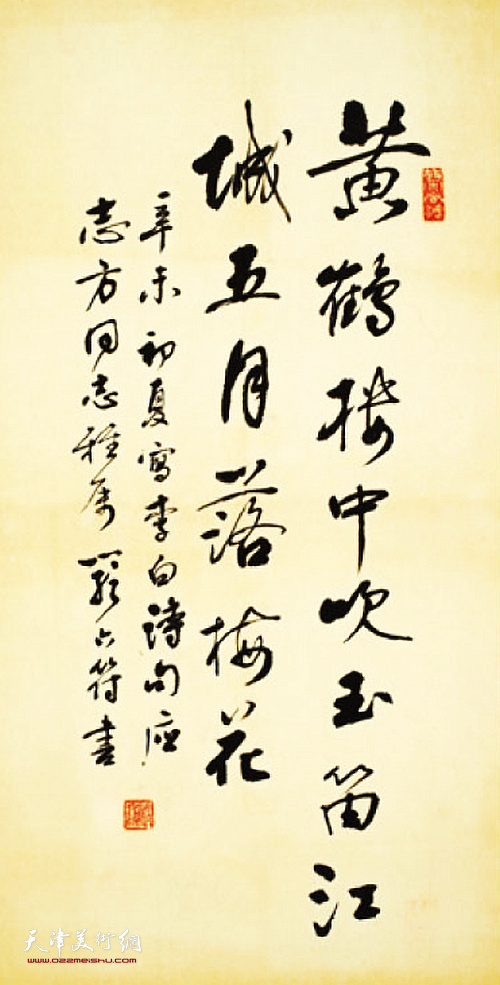 黄鹤楼中吹玉笛江
城五月落梅花
辛未初夏写李白诗句应
志方同志雅属 龚六符书
天津美術網
www.022meishu.com